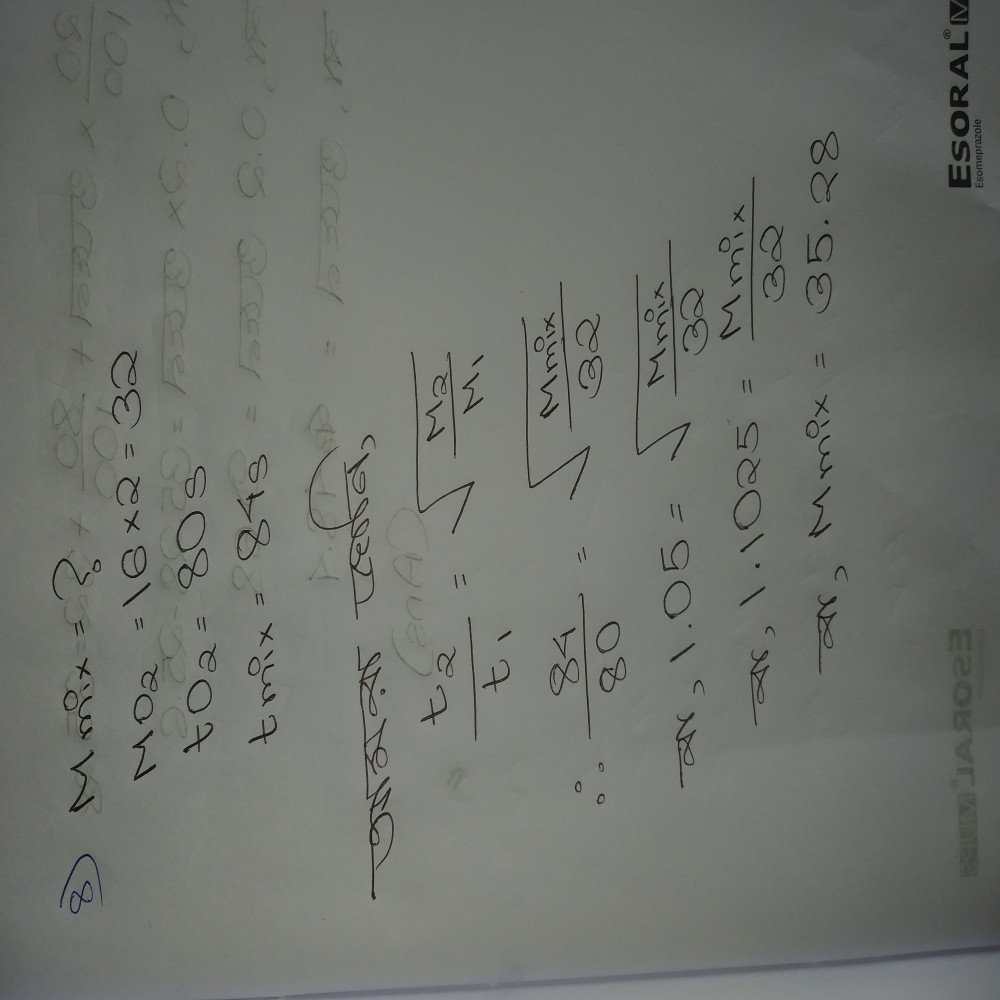 8) Mmix = ?
MO2 = 16 × 2 = 32
tO2 = 80s
tmix = 84s
t2/t1 = √M2/M1
∴ 84/80 = √Mmix/32
বা, 1.05 = √Mmix/32
বা, 1.1025 = Mmix/32
বা, Mmix = 35.28
ESORAL® M
Esomeprazole